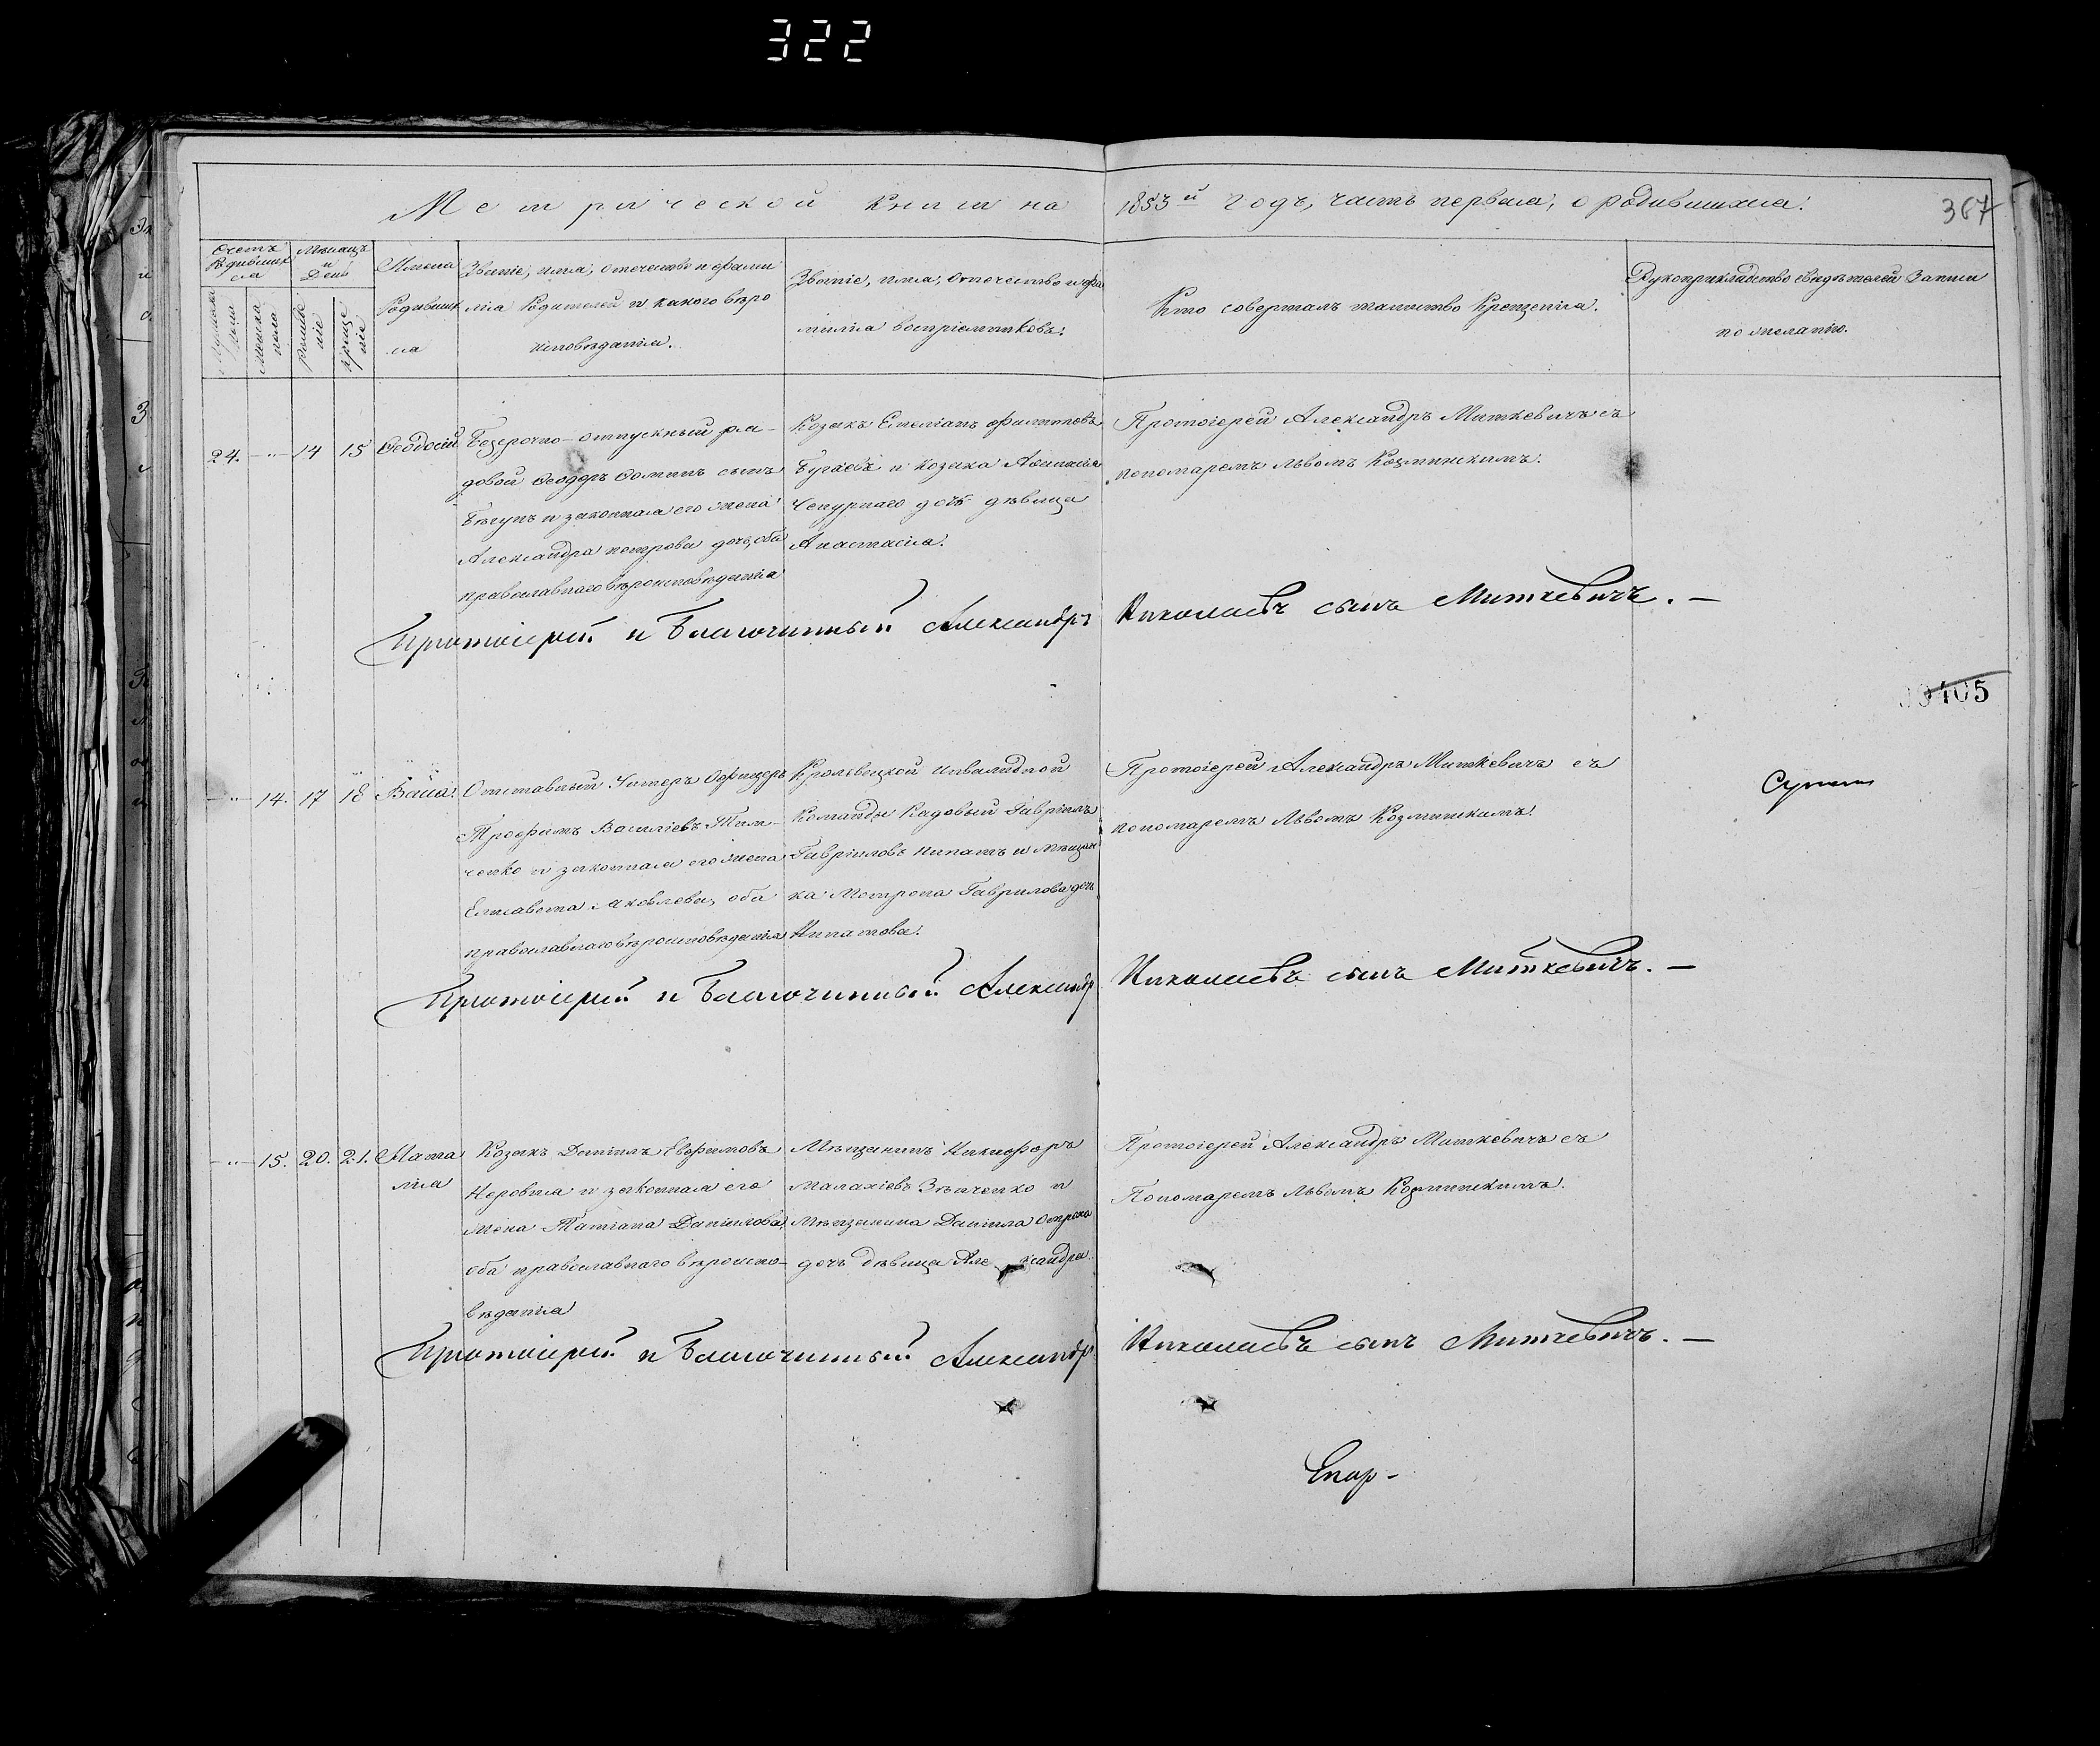 322
Метрической книги на 1853й годъ, часть первая, о родившихся.
367
Счетъ родившихся
Мѣсяцъ и День
мужеска пола
женска пола
рожденіе
крещеніе
Имена Родившихся
Званіе, имя, отечество и фамилія Родителей и какого вѣроисповѣданія.
Званіе, имя, отечество и фамилія воспріемниковъ.
Кто совершалъ таинство Крещенія.
Рукоприкладство свидѣтелей Записи по желанію.
24. - 14 15 Ѳеодосій
Безсрочно-отпускный ря-
довой Ѳеодоръ Ѳоминъ сынъ
Бѣгунъ и законная его жена
Александра петрова дочь, оба
православнаго вѣроисповѣданія
Козакъ Емеліанъ филиповъ
Бугаевъ и козака Аѳанасія
Чепурнаго дочь дѣвица
Анастасія.
Протоіерей Александръ Миткевичъ съ
пономаремъ Львомъ Козминскимъ.
Протоіерей и Благочинный Александръ Николаевъ сынъ Миткевичъ. —
405
- 14. 17 18 Васса.
Отставный Унтеръ Офицеръ
Трофимъ Василіевъ Тим-
ченко и законная его жена
Елисавета Яковлева, оба
православнаго вѣроисповѣданія
Кролевецкой инвалидной
Команды Рядовый Гавріилъ
Гавріиловъ Ипатъ и мѣщан
ка Мотрона Гаврилова дочь
Ипатова.
Протоіерей Александръ Миткевичъ съ
пономаремъ Львомъ Козминскимъ.
Протоіерей и Благочинный Александръ Николаевъ сынъ Миткевичъ. —
- 15. 20. 21. Ната
лія
Козакъ Даніилъ Евфимовъ
Неровня и законная его
жена Татіана Даниилова,
оба православнаго вѣроиспо-
вѣданія
Мѣщанинъ Никифоръ
Малахіевъ Зѣнченко и
мѣщанина Даніила
дочь дѣвица Александра.
Протоіерей Александръ Миткевичъ съ
Пономаремъ Львомъ Козминскимъ.
Протоіерей и Благочинный Александръ Николаевъ сынъ Миткевичъ. —
Епар-